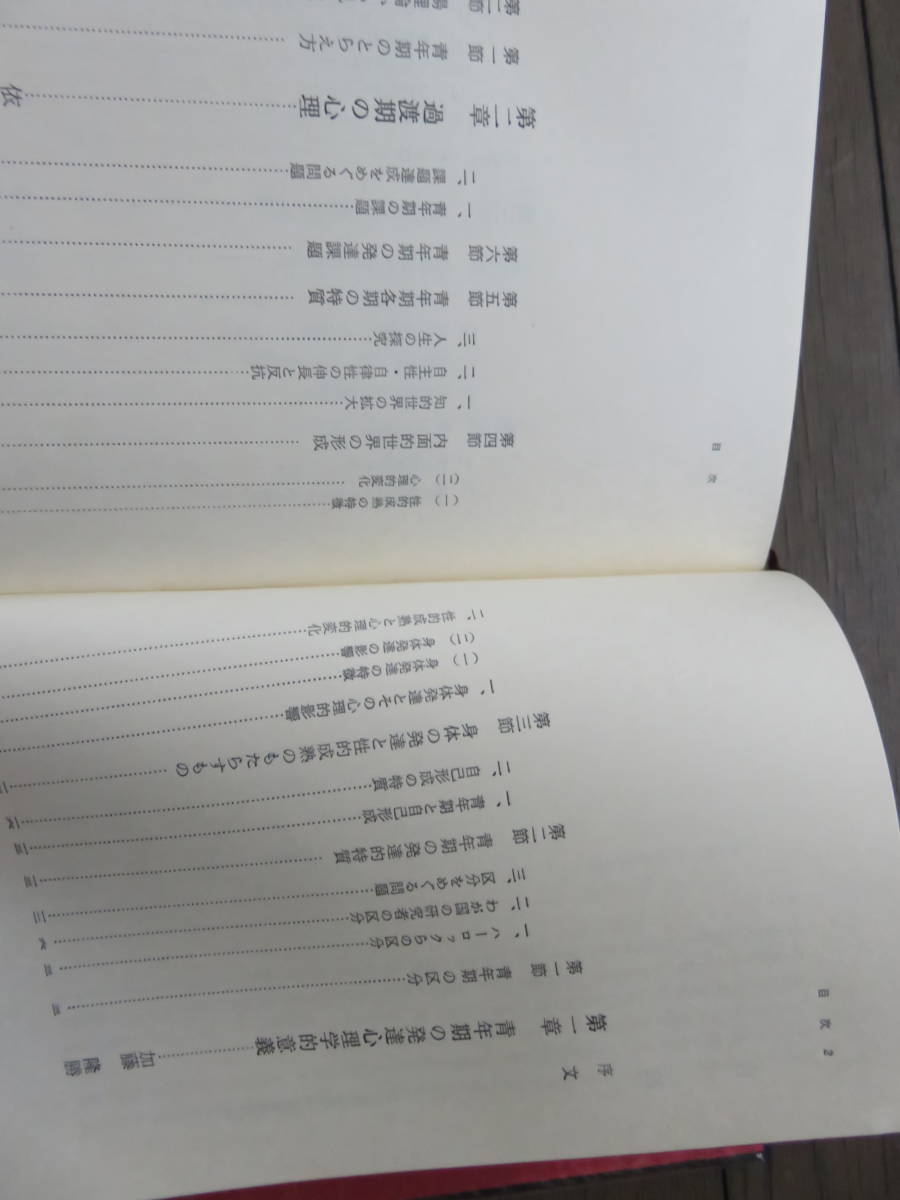 目次 2
序文
第一章 青年期の発達心理学的意義……加藤隆勝
第一節 青年期の区分……
一、ハーロックらの区分……
二、わが国の研究者の区分……
三、区分をめぐる問題……
第二節 青年期の発達的特質……
一、青年期と自己形成……
二、自己形成の特質……
第三節 身体の発達と性的成熟のもたらすもの……
一、身体発達とその心理的影響……
（一）身体発達の特徴……
（二）身体発達の影響……
二、性的成熟と心理的変化……
目次
（一）性的成熟の特徴……
（二）心理的変化……
第四節 内面的世界の形成……
一、知的世界の拡大……
二、自主性・自律性の伸長と反抗……
三、人生の探究……
第五節 青年期各期の特質……
第六節 青年期の発達課題……
一、青年期の課題……
二、課題達成をめぐる問題……
第二章 過渡期の心理……依
第一節 青年期のとらえ方……
第二